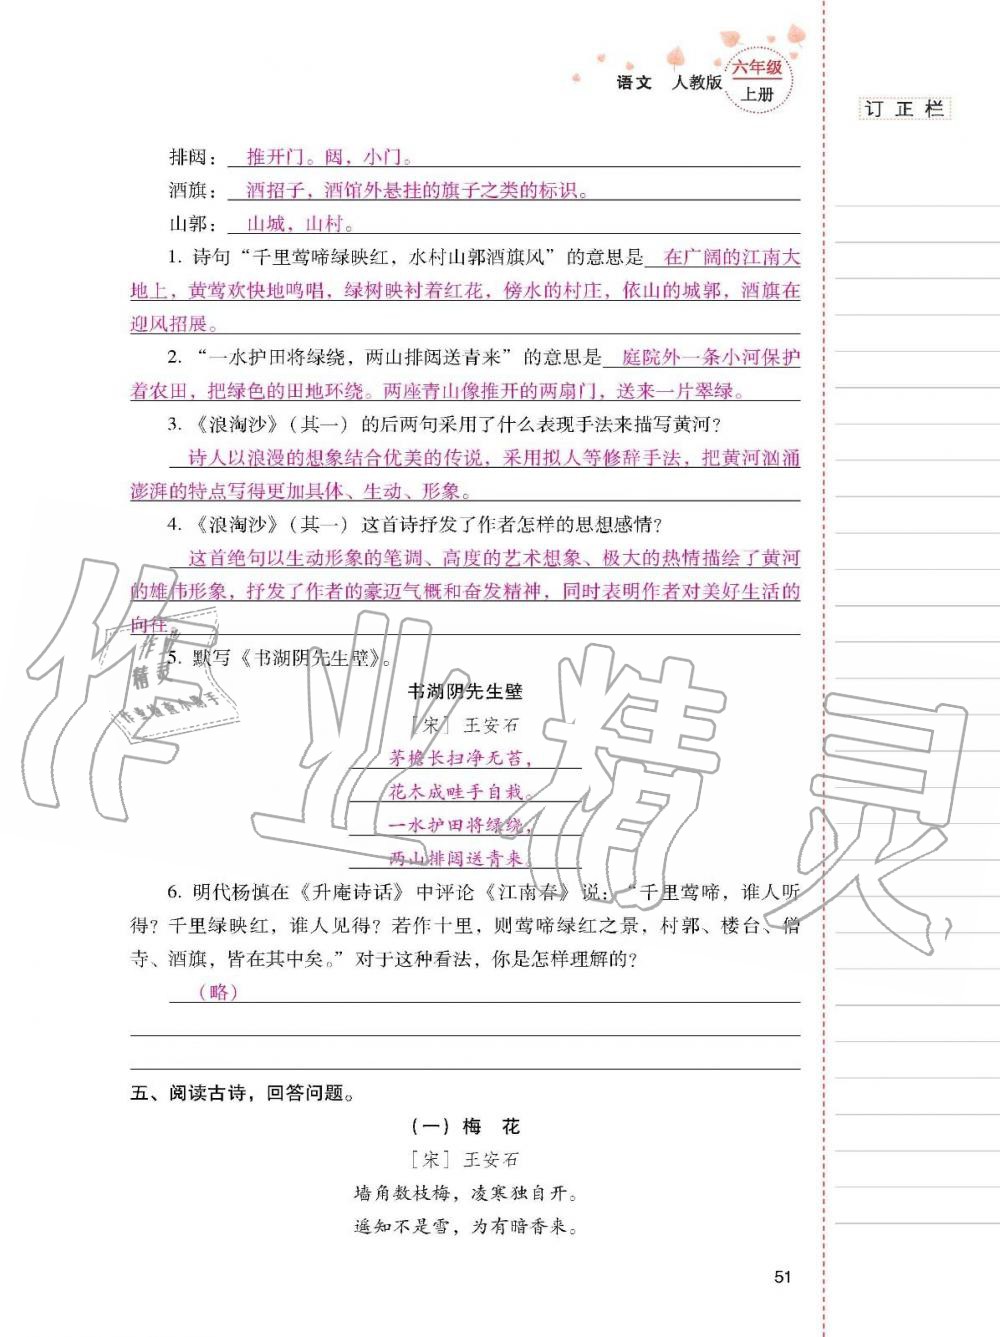 语文 人教版 六年级
上册
订正栏
排闼：推开门。闼，小门。
酒旗：酒招子，酒馆外悬挂的旗子之类的标识。
山郭：山城，山村。
1. 诗句“千里莺啼绿映红，水村山郭酒旗风”的意思是 在广阔的江南大
地上，黄莺欢快地鸣唱，绿树映衬着红花，傍水的村庄，依山的城郭，酒旗在
迎风招展。
2. “一水护田将绿绕，两山排闼送青来”的意思是 庭院外一条小河保护
着农田，把绿色的田地环绕。两座青山像推开的两扇门，送来一片翠绿。
3. 《浪淘沙》（其一）的后两句采用了什么表现手法来描写黄河？
诗人以浪漫的想象结合优美的传说，采用拟人等修辞手法，把黄河汹涌
澎湃的特点写得更加具体、生动、形象。
4. 《浪淘沙》（其一）这首诗抒发了作者怎样的思想感情？
这首绝句以生动形象的笔调、高度的艺术想象、极大的热情描绘了黄河
的雄伟形象，抒发了作者的豪迈气概和奋发精神，同时表明作者对美好生活的
向往
5. 默写《书湖阴先生壁》。
书湖阴先生壁
［宋］王安石
茅檐长扫净无苔，
花木成畦手自栽。
一水护田将绿绕，
两山排闼送青来。
6. 明代杨慎在《升庵诗话》中评论《江南春》说：“千里莺啼，谁人听
得？千里绿映红，谁人见得？若作十里，则莺啼绿红之景，村郭、楼台、僧
寺、酒旗，皆在其中矣。”对于这种看法，你是怎样理解的？
（略）
五、阅读古诗，回答问题。
（一）梅 花
［宋］王安石
墙角数枝梅，凌寒独自开。
遥知不是雪，为有暗香来。
51
作业精灵
作业
精灵
作业检查小助手